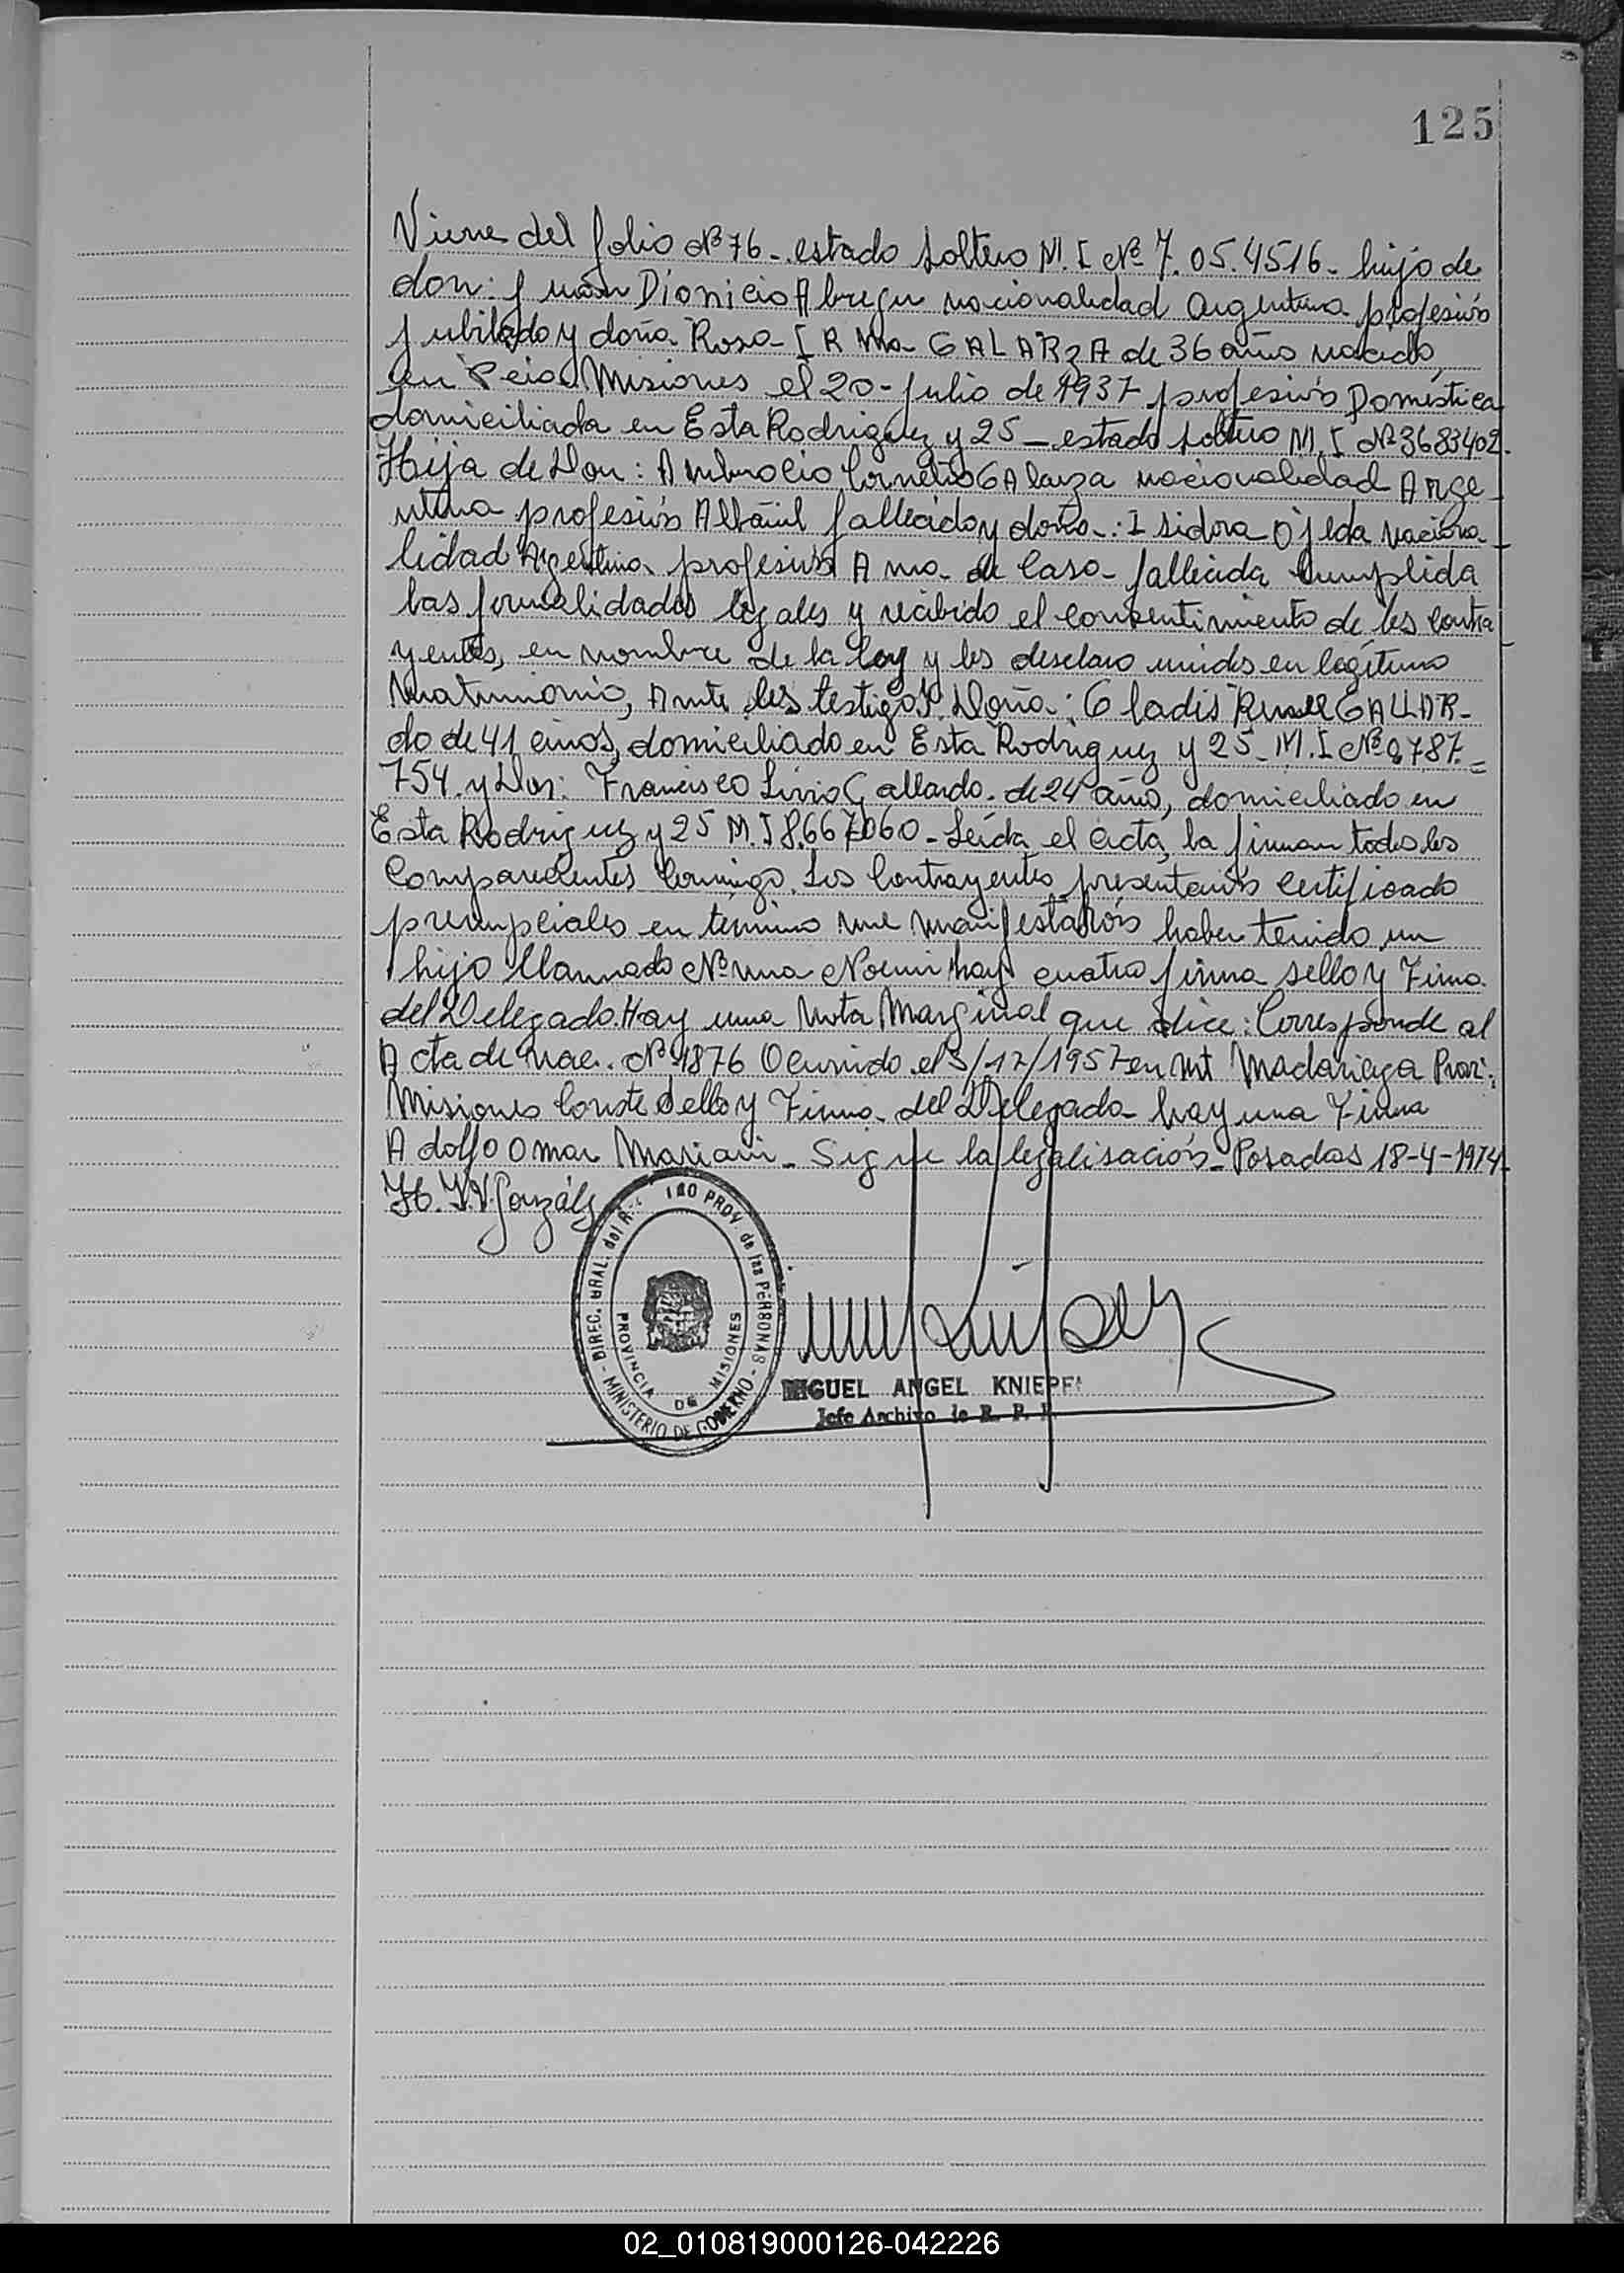 125
Viene del folio Nº 76 - estado soltero M. I Nº 7.05.4516 - hijo de
don: Juan Dionicio Abregu nacionalidad argentina profesión
jubilado y doña Rosa IRMa GALARZA de 36 año nacido
en Misiones el 20 - julio de 1937 profesión Doméstica
domiciliada en Esta Rodriguez y 25 - estado soltero M. I Nº 3683402.
Hija de Don: Ambrocio Cornelio GAlarza nacionalidad Arge
ntina profesión Albañil fallecido y doña: Isidora Ojeda naciona
lidad Argentina profesión Ama de Casa fallecida Cumplida
las formalidades legales y recibido el consentimiento de los contra
yentes, en nombre de la ley y los desclaro unidos en legítimo
Matrimonio, Ante los testigos. Doña: Gladis GALLAR-
do de 41 años, domiciliado en Esta Rodriguez y 25 - M. I Nº 9,787.=
754. y Don: Francisco Livio Gallardo. de 24 año, domiciliado en
Esta Rodriguez y 25 M. I 8.667.060 - Leída el acta, la firman todos los
Comparecientes Conmigo. Los Contrayentes presentarón certificado
prenupciales en término me manifestarón haber tenido un
hijo llamado Norma Noemi hay cuatro firma sello y Firma.
del Delegado. Hay una Nota Marginal que dice: Corresponde al
Acta de Nac. Nº 1876 Ocurrido el 3/12/1957 en Madariaga Prov:
Misiones Conste Sello y Firma del Delegado hay una Firma
Adolfo Omar Mariani - Sigue la legalisación - Posadas 18-4-1974
H. V. González
DIREC. GRAL. del R. PROV de las PERSONAS
PROVINCIA DE MISIONES
- MINISTERIO DE GOBIERNO -
MIGUEL ANGEL KNIEPF
Jefe Archivo de R. P. P.
02_010819000126-042226